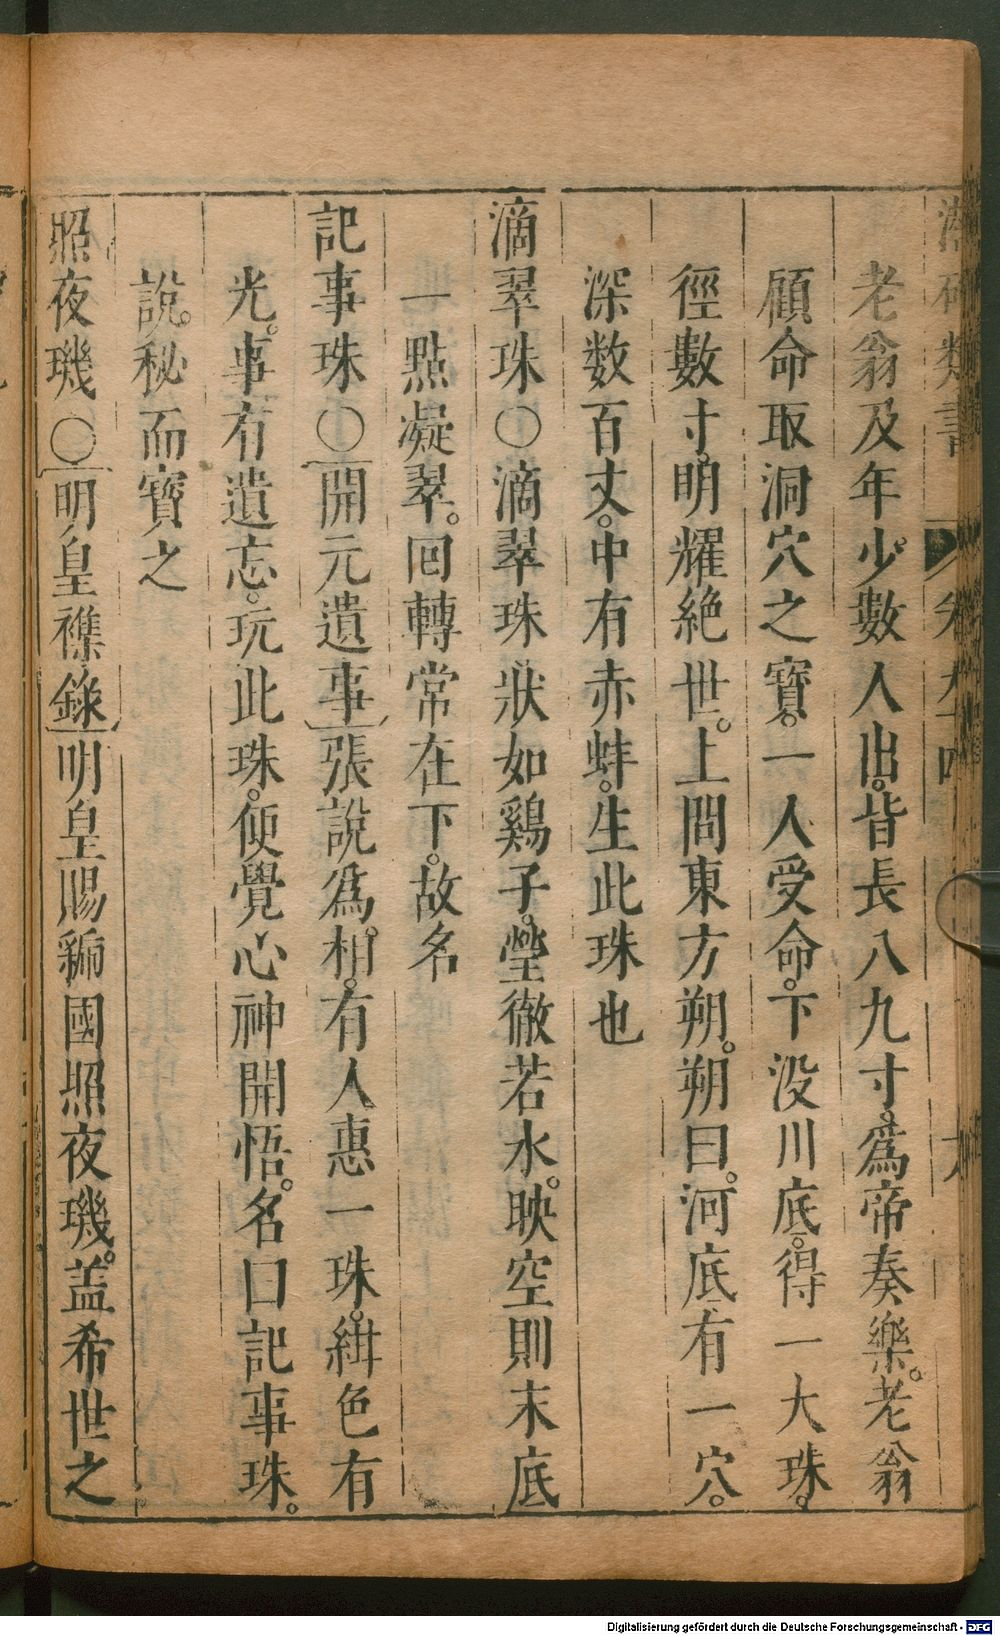 潛確類書 卷九十四 九
老翁及年少數人出。皆長八九寸。爲帝奏樂。老翁
顧命取洞穴之寶。一人受命。下没川底。得一大珠。
徑數寸。明耀絶世。上問東方朔。朔曰。河底有一穴。
深数百丈。中有赤蚌。生此珠也
滴翠珠〇滴翠珠狀如鷄子。瑩徹若水。映空則末底
一點凝翠。囘轉常在下。故名
記事珠〇開元遺事張說爲相。有人惠一珠。紺色有
光。事有遺忘。玩此珠。便覺心神開悟。名曰記事珠。
說。秘而寶之
照夜璣〇明皇襍錄明皇賜虢國照夜璣。盖希世之
Digitalisierung gefördert durch die Deutsche Forschungsgemeinschaft - DFG